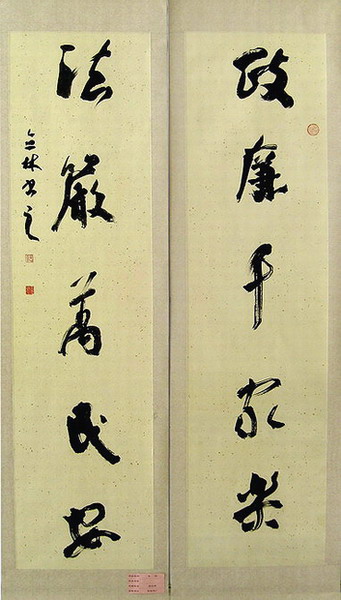 政廉千家樂
法嚴萬民安
林書之